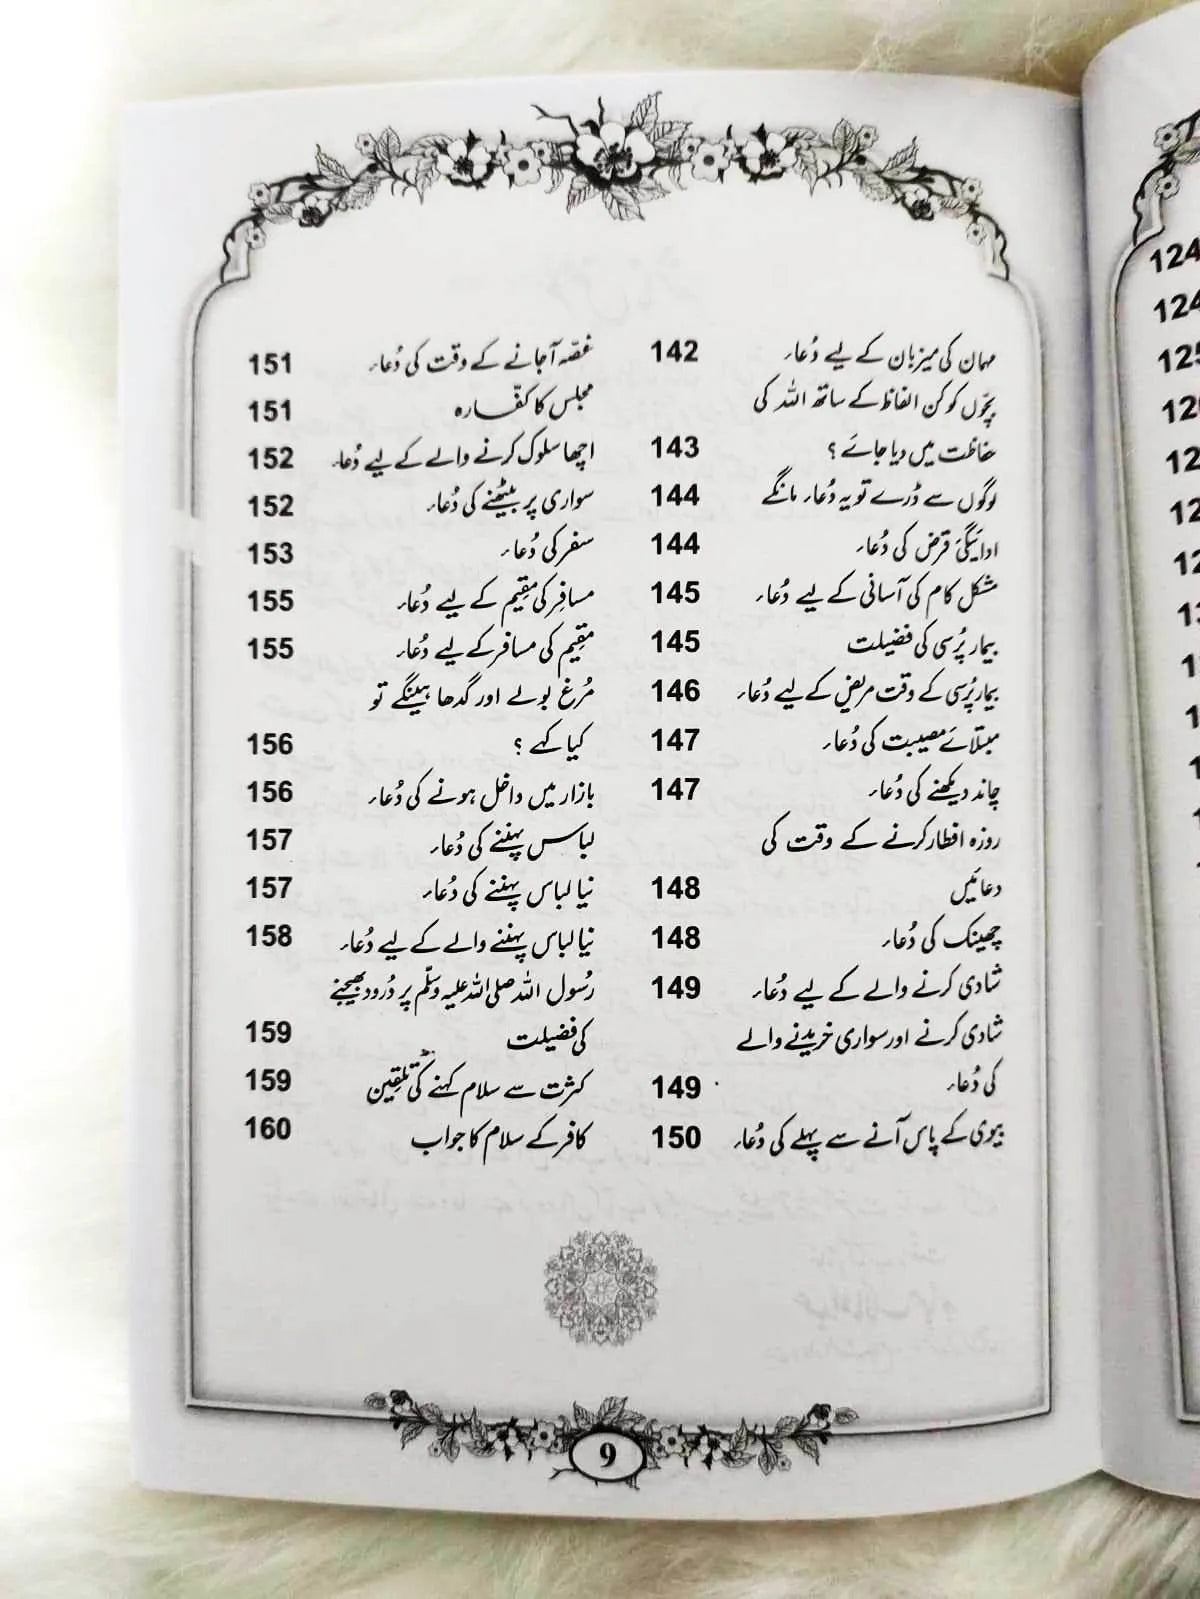 مہمان کی میزبان کے لیے دُعاء 142
بچّوں کو کن الفاظ کے ساتھ اللہ کی
حفاظت میں دیا جائے ؟ 143
لوگوں سے ڈرے تو یہ دُعاء مانگے 144
ادائیگیٔ قرض کی دُعاء 144
مشکل کام کی آسانی کے لیے دُعاء 145
بیمار پُرسی کی فضیلت 145
بیمار پُرسی کے وقت مریض کے لیے دُعاء 146
مبتلائے مصیبت کی دُعاء 147
چاند دیکھنے کی دُعاء 147
روزہ افطار کرنے کے وقت کی
دعائیں 148
چھینک کی دُعاء 148
شادی کرنے والے کے لیے دُعاء 149
شادی کرنے اور سواری خریدنے والے
کی دُعاء 149
بیوی کے پاس آنے سے پہلے کی دُعاء 150
غصّہ آجانے کے وقت کی دُعاء 151
مجلس کا کفّارہ 151
اچھا سلوک کرنے والے کے لیے دُعاء 152
سواری پر بیٹھنے کی دُعاء 152
سفر کی دُعاء 153
مسافِر کی مقِیم کے لیے دُعاء 155
مقِیم کی مسافر کے لیے دُعاء 155
مُرغ بولے اور گدھا ہینگے تو
کیا کہے ؟ 156
بازار میں داخل ہونے کی دُعاء 156
لباس پہننے کی دُعاء 157
نیا لباس پہننے کی دُعاء 157
نیا لباس پہننے والے کے لیے دُعاء 158
رسُول اللہ صلی اللہ علیہ وسلّم پر دُرود بھیجنے
کی فضیلت 159
کثرت سے سلام کہنے کی تلقِین 159
کافر کے سلام کا جواب 160
9
124